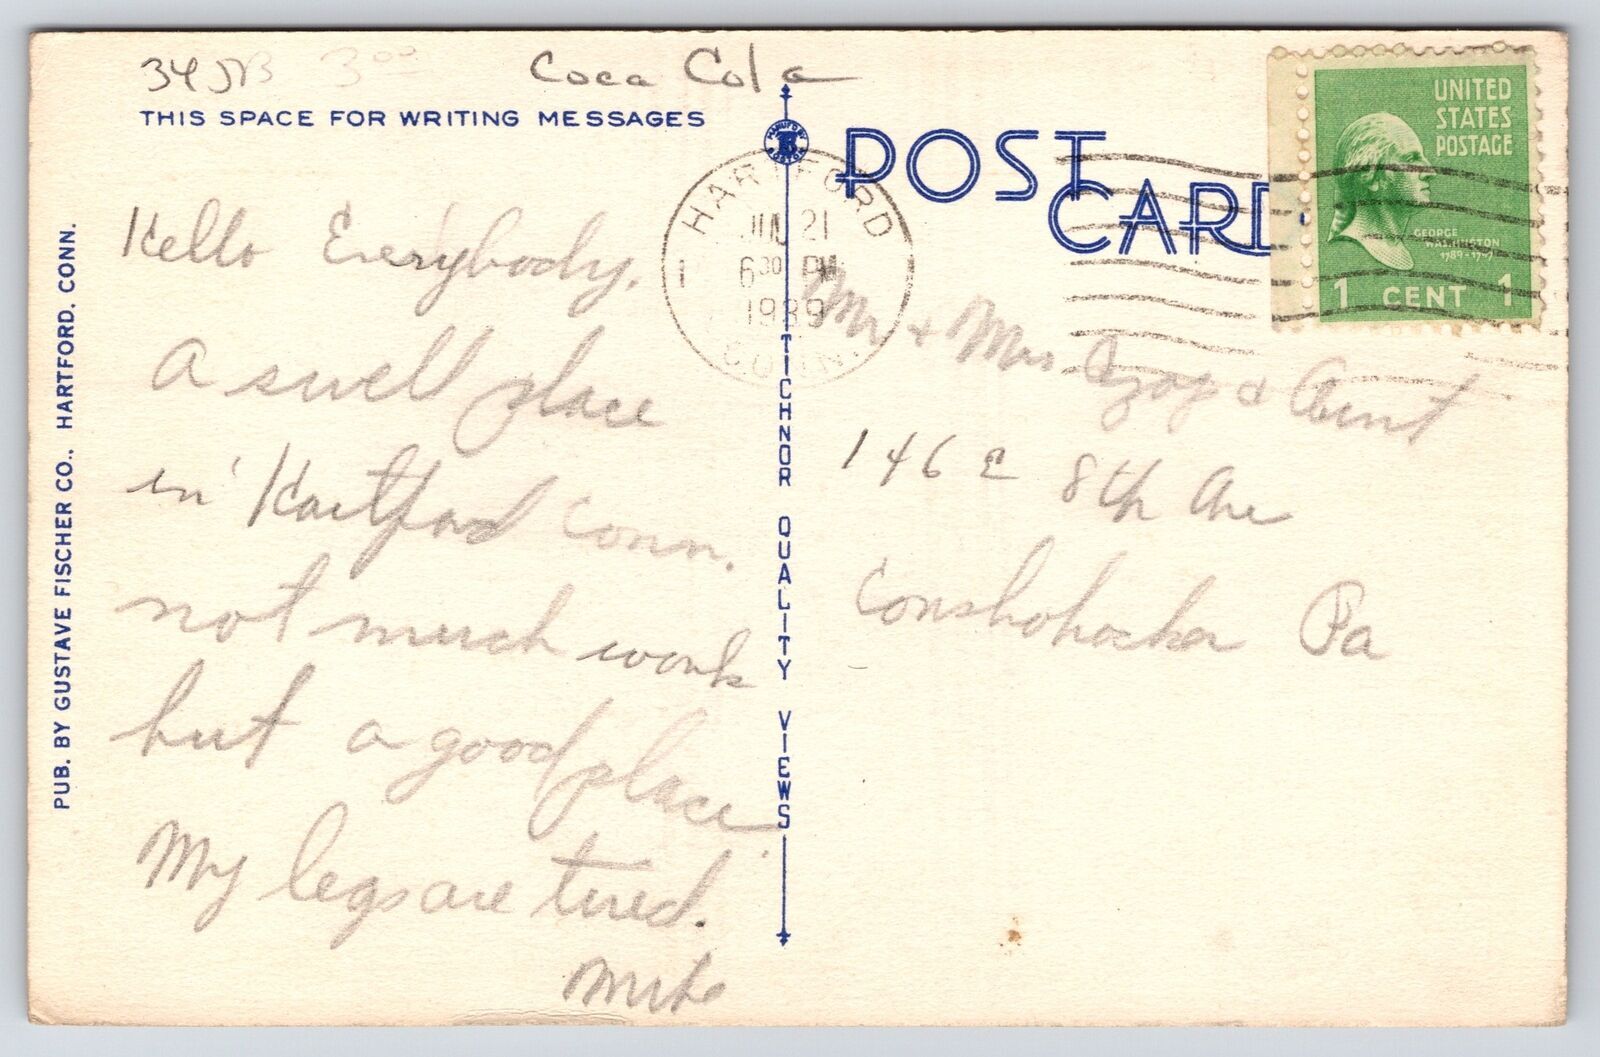 34 JB 3.00
Coca Cola
THIS SPACE FOR WRITING MESSAGES
POST
CARD
UNITED
STATES
POSTAGE
GEORGE
WASHINGTON
1789-1797
1 CENT 1
HARTFORD
1
JUN 21
6 30 PM
1939
CONN.
Hello Everybody.
A swell place
in Hartford Conn.
not much work
but a good place.
My legs are tired.
Mike
Mr & Mrs & Aunt
146 E 8th Ave
Conshohocken Pa
PUB. BY GUSTAVE FISCHER CO., HARTFORD, CONN.
TICHNOR QUALITY VIEWS